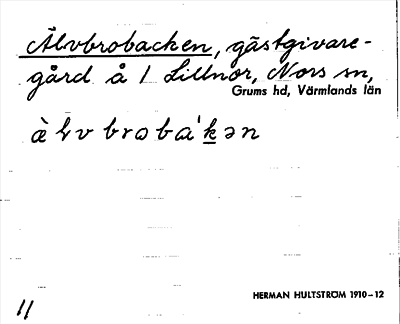 Älvbrobacken, gästgivare-
gård å 1 Lillnor, Nors sn,
Grums hd, Värmlands län
HERMAN HULTSTRÖM 1910-12
11